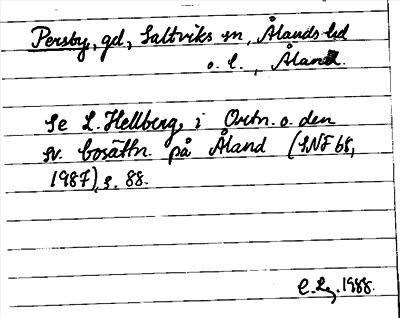 Persby, gd, Saltviks sn, Ålands lid
o. l., Åland.
Se L. Hellberg, i Ortn. o. den
sv. bosättn. på Åland (SNF 68,
1987), s. 88.
1988.